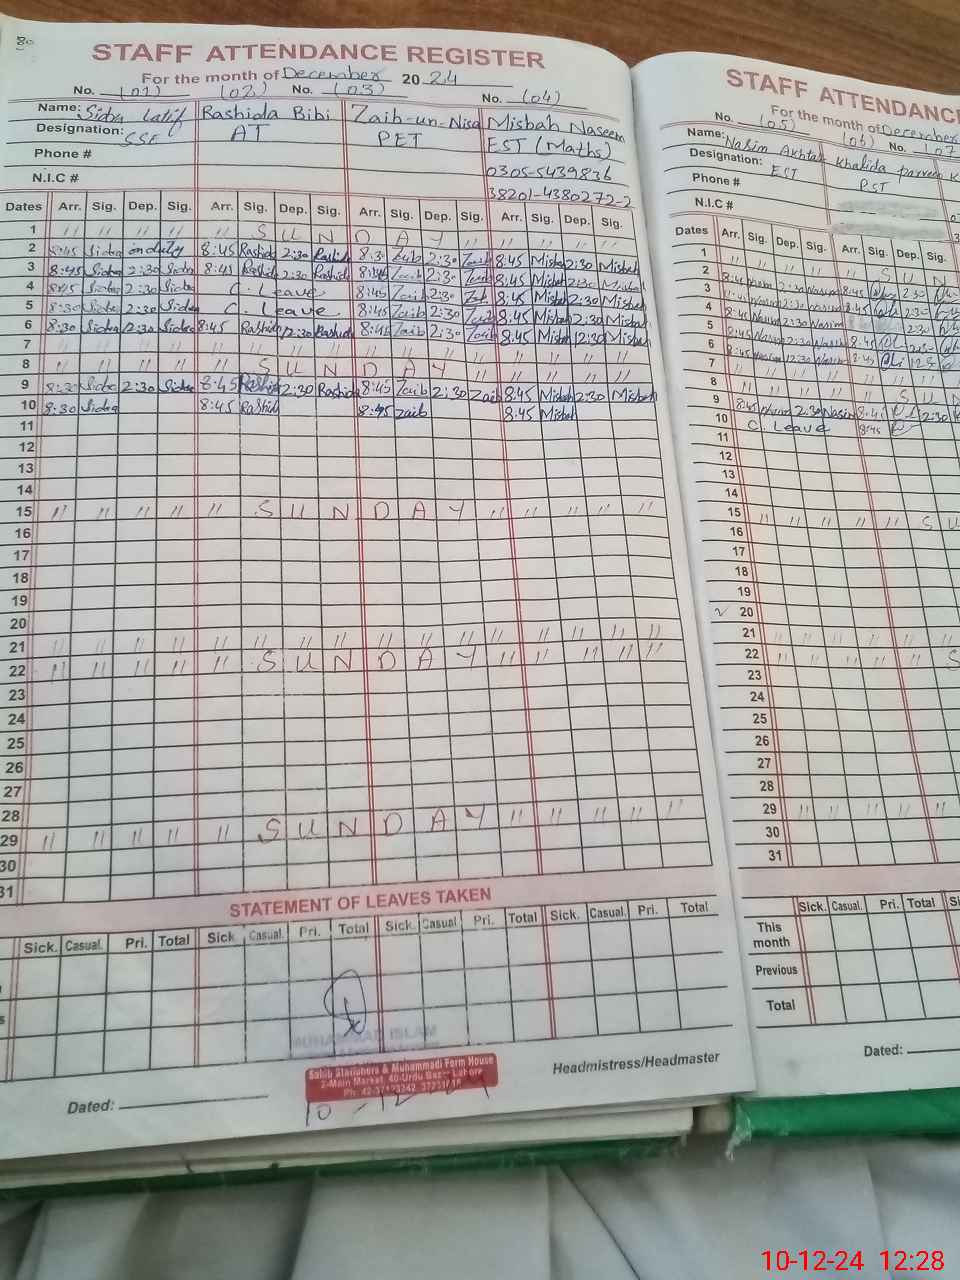 80
STAFF ATTENDANCE REGISTER
For the month of December 2024
No. (01) (02) No. (03) No. (04)
Name: Sidra Latif Rashida Bibi Zaib-un-Nisa Misbah Naseem
Designation: SSE AT PET EST (Maths)
Phone # 0305-5439836
N.I.C # 38201-4380272-2
Dates Arr. Sig. Dep. Sig. Arr. Sig. Dep. Sig. Arr. Sig. Dep. Sig. Arr. Sig. Dep. Sig.
1 " " " " " S U N D A Y " " " " "
2 8:45 Sidra on duty 8:45 Rashida 2:30 Rashida 8:30 Zaib 2:30 Zaib 8:45 Misbah 2:30 Misbah
3 8:45 Sidra 2:30 Sidra 8:45 Rashida 2:30 Rashida 8:45 Zaib 2:30 Zaib 8:45 Misbah 2:30 Misbah
4 8:45 Sidra 2:30 Sidra C. Leave 8:45 Zaib 2:30 Zaib 8:45 Misbah 2:30 Misbah
5 8:30 Sidra 2:30 Sidra C. Leave 8:45 Zaib 2:30 Zaib 8:45 Misbah 2:30 Misbah
6 8:30 Sidra 12:30 Sidra 8:45 Rashida 12:30 Rashida 8:45 Zaib 12:30 Zaib 8:45 Misbah 12:30 Misbah
7 " " " " " " " " " " " " " " " "
8 " " " " " S U N D A Y " " " " "
9 8:30 Sidra 2:30 Sidra 8:45 Rashida 2:30 Rashida 8:45 Zaib 2:30 Zaib 8:45 Misbah 2:30 Misbah
10 8:30 Sidra 8:45 Rashida 8:45 Zaib 8:45 Misbah
11
12
13
14
15 " " " " " S U N D A Y " " " " "
16
17
18
19
20
21 " " " " " " " " " " " " " " " "
22 " " " " " S U N D A Y " " " " "
23
24
25
26
27
28
29 " " " " " S U N D A Y " " " " "
30
31
STATEMENT OF LEAVES TAKEN
Sick. Casual. Pri. Total Sick Casual. Pri. Total Sick. Casual. Pri. Total Sick. Casual. Pri. Total
MUHAMMAD ISLAM
Sahib Stationers & Muhammadi Form House
2-Main Market, 40-Urdu Bazar Lahore
Headmistress/Headmaster
Dated:
STAFF ATTENDANCE
For the month of December
No. (05) (06) No. (07
Name: Nasim Akhtar Khalida Parveen K
Designation: EST PST
Phone #
N.I.C #
Dates Arr. Sig. Dep. Sig. Arr. Sig. Dep. Sig.
1 " " " " " " S U N
2 8:45 2:30 8:45 2:30
3 8:45 2:30 8:45 2:30
4 8:45 Nasim 2:30 Nasim 2:30
5 8:45 Nasim 2:30 Nasim 8:45
6 8:45 Nasim 12:30 Nasim 8:45
7 " " " " " " " "
8 " " " " " " S U N
9 8:45 2:30 Nasim 8:45 2:30
10 C. Leave 8:45
11
12
13
14
15 " " " " " " S U
16
17
18
19
20
21 " " " " " "
22 " " " " " " S
23
24
25
26
27
28
29 " " " " " "
30
31
Sick. Casual. Pri. Total Si
This month
Previous
Total
Dated:
10-12-24 12:28